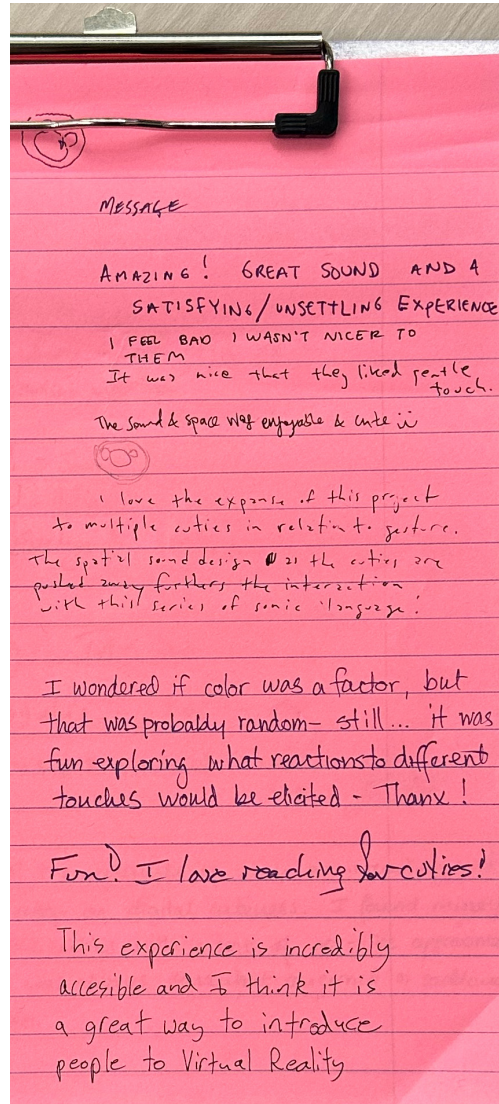 MESSAGE
AMAZING! GREAT SOUND AND A
SATISFYING/UNSETTLING EXPERIENCE
I FEEL BAD I WASN'T NICER TO
THEM
It was nice that they liked gentle
touch.
The sound & space was enjoyable & cute ü
I love the expanse of this project
to multiple cuties in relation to gesture.
The spatial sound design as the cuties are
pushed away furthers the interaction
with this series of sonic language!
I wondered if color was a factor, but
that was probably random– still... it was
fun exploring what reactions to different
touches would be elicited - Thanx!
Fun! I love reaching for cuties!
This experience is incredibly
accesible and I think it is
a great way to introduce
people to Virtual Reality